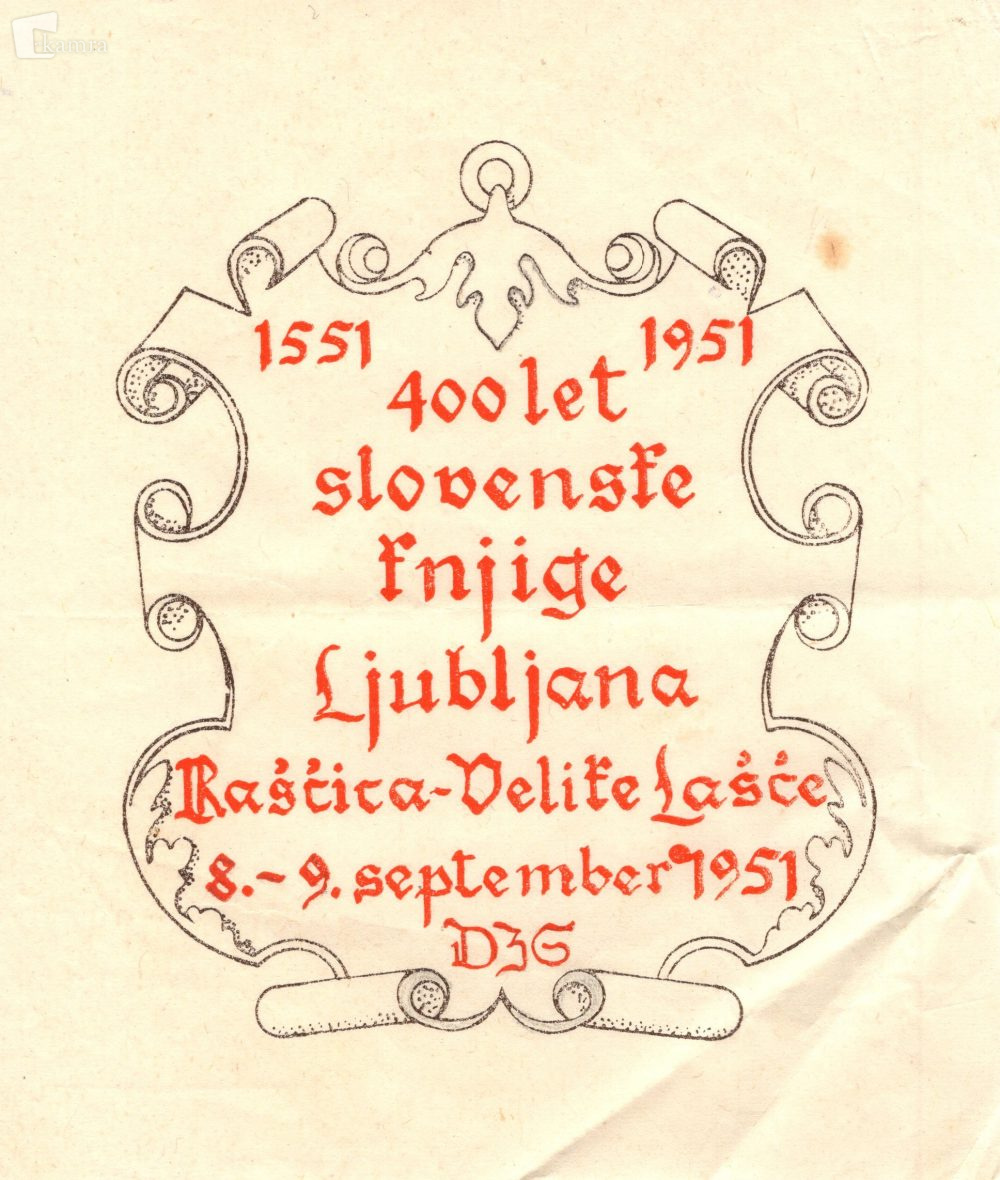 ekamra
1551 1951
400 let
slovenske
knjige
Ljubljana
Raščica-Velike Lašče
8.-9. september 1951
DZS